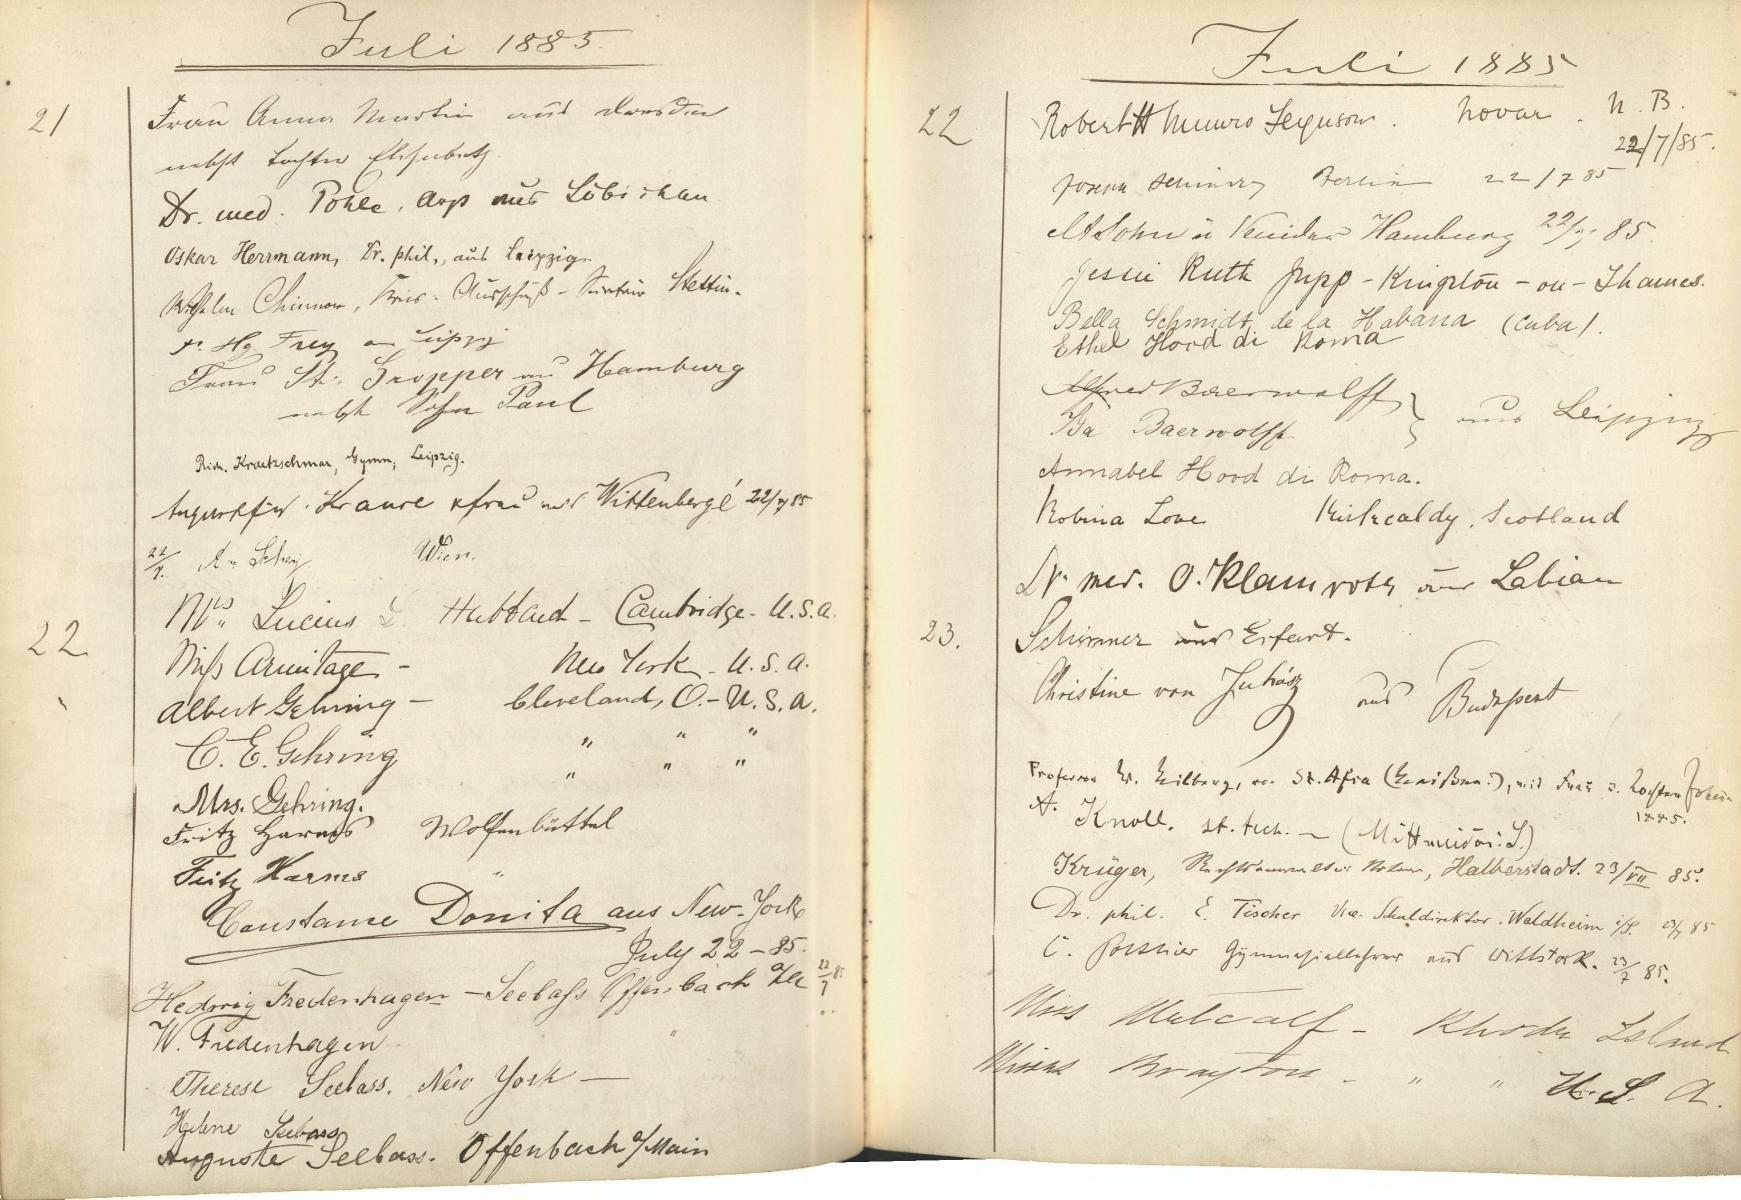 Juli 1885.
21
Frau Anna Martin aus Dresden
nebst Tochter Elisabeth.
Dr. med. Pohle, Arp aus Löbichau
Oskar Herrmann, Dr. phil., aus Leipzig.
Wilhelm Chinnow, Stettin.
Frey Leipzig
Frau St. Gropper aus Hamburg
nebst Sohn Paul
Rich. Kraetzschmar, Gymn, Leipzig.
Krause & frau aus Wittenberge 22/7 85
22/7. Wien.
22
Mrs. Lucius L. Hubbard – Cambridge - U.S.A.
Miss Armitage – New York - U.S.A.
Albert Gehring – Cleveland, O. – U.S.A.
C. E. Gehring " " "
Mrs. Gehring. " " "
Fritz Harms Wolfenbüttel
Fritz Harms "
Constance Donita aus New-York
July 22 – 85.
Hedwig Fredenhagen – Seebass Offenbach a/M 22/7 85
W. Fredenhagen "
Therese Seebass. New York –
Helene Seebass
Auguste Seebass. Offenbach a/Main
Juli 1885
22
Robert H Munro Ferguson. Novar. N.B.
22/7/85.
Berlin 22/7 85
Hamburg 22/7 85.
Jessie Ruth Jupp - Kingston - on - Thames.
Bella Schmidt de la Habana (Cuba).
Ethel Hood di Roma
Alfred Baerwolff
Ida Baerwolff } aus Leipzig
Annabel Hood di Roma.
Robina Love Kirkcaldy, Scotland
Dr. med. O. Klamroth aus Labiau
23.
Schirmer aus Erfurt.
Christine von Juhász aus Budapest
Professor Dr. Hilberg, von St. Afra (Meißen), mit Frau u. Tochter
1885.
A. Knoll. st. tech. – (Mittweida i. S.)
Krüger, Rechtsanwalt u. Notar, Halberstadt. 23/VII 85.
Dr. phil. E. Tischer Vice-Schuldirektor. Waldheim i/S. 23/7 85
C. Gymnasiallehrer aus Wittstock. 23/7 85.
Miss Metcalf – Rhode Island
Misses Brayton – " " U.S.A.